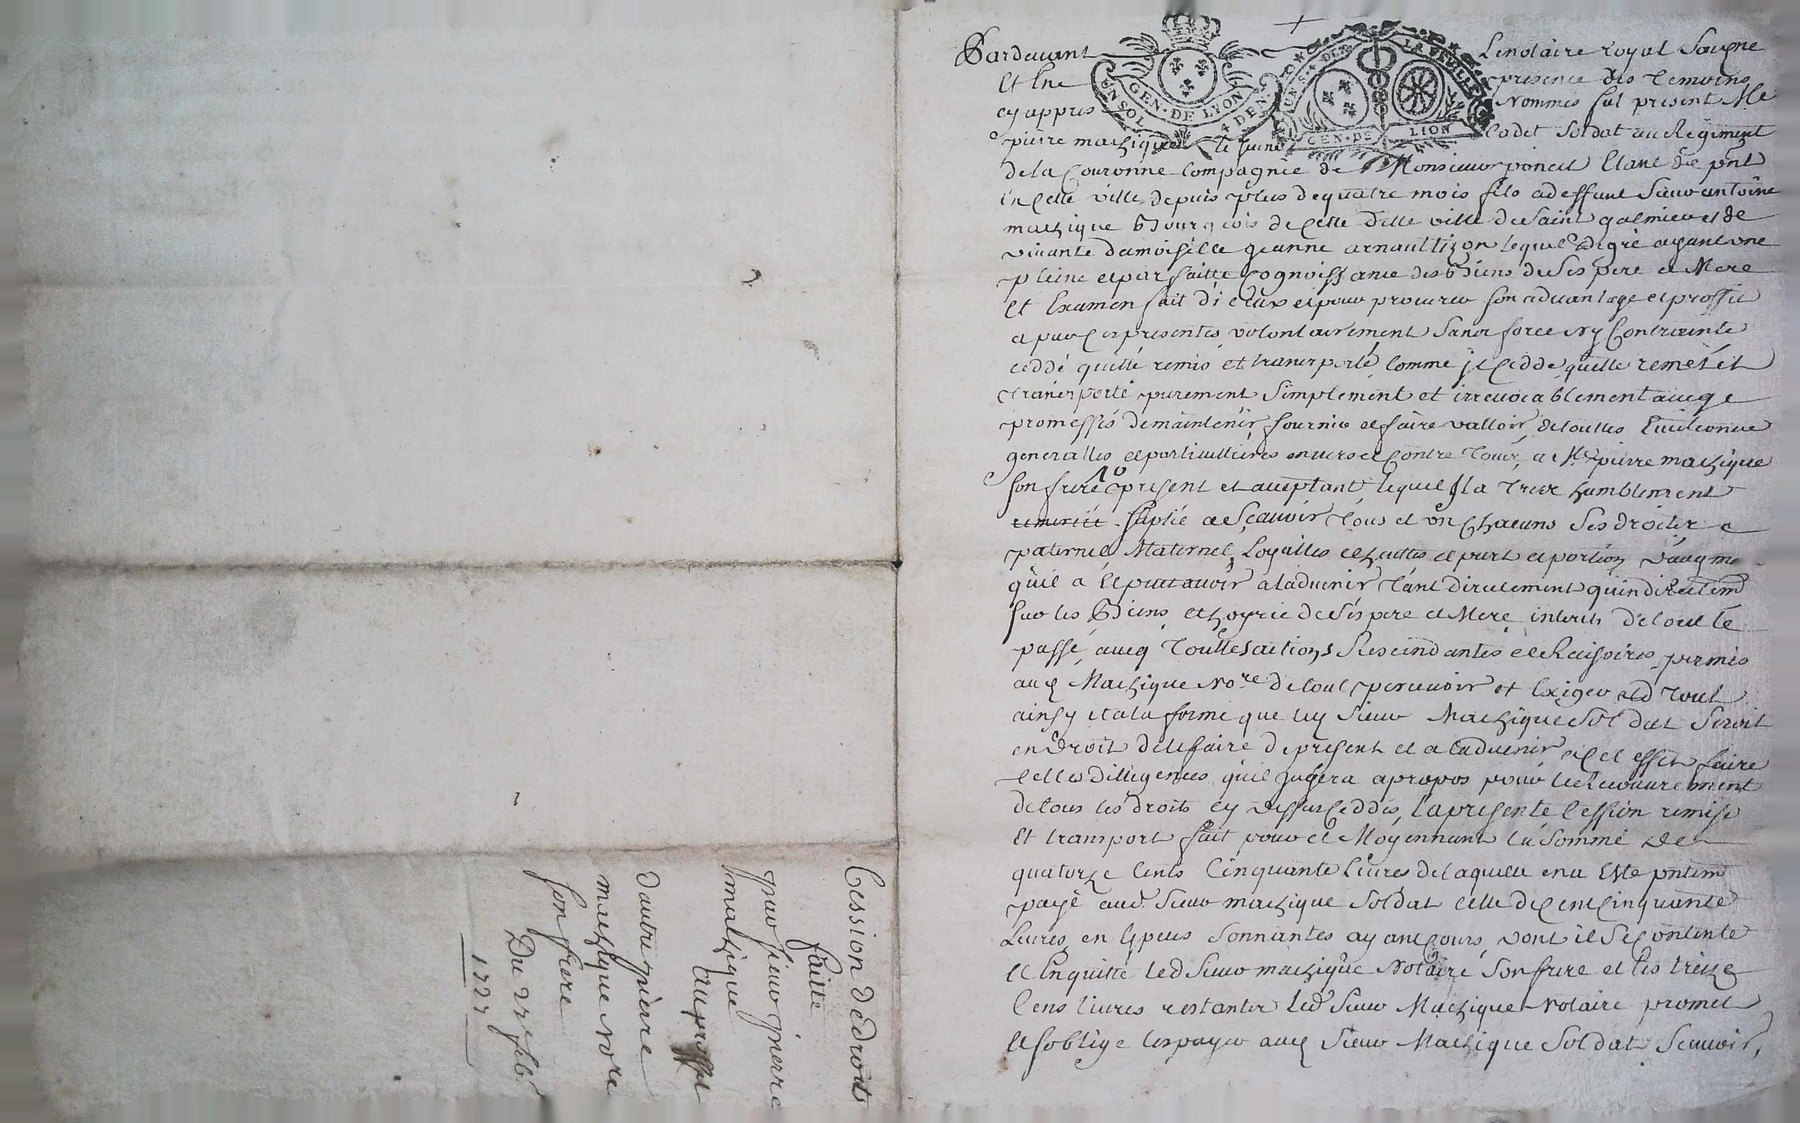 Pardevant Lenotaire royal Sougne
Et Ene presence des temoins
cy appres Nommes fut present Me
pierre mathique le jeune Cadet Soldat au Regiment
de la Couronne Compagnie de Monsieur poncet Etant de pnt
En Cette ville depuis plus dequatre mois fils adeffunt Sieur antoine
mathique Bourgeois de Cette ditte ville de Saint galmier et de
vivante damoiselle Jeanne arnaultizon lequel degré ayant une
pleine et parfaitte Cognoissance des Biens de Ses pere et Mere
Et Examen fait diceux et pour procurer son advantage et proffit
a par Ces presentes volontairement Sans force ny Contrainte
ceddé quitté remis et transporté Comme il Cedde quitte remet et
transporte purement Simplement et irrevocablement aveq
promesses demaintenir fournir et faire valloir detouttes Evictions
generalles et particullieres envers et Contre tous, a Me pierre mathique
son frere No present et acceptant lequel Il a tres humblement
remercié suplié a Scavoir tous et un Chacuns Ses droits
paternels Maternels Loyalles eschuttes et part et portion
quil a Et peut avoir aladvenir tant directement quindirectemt
sur les Biens et hoyrie de Ses pere et Mere interets detout le
passé, aveq touttes actions Rescindantes et Rescisoires permis
aud Mathique Nore detout percevoir et Exiger led tout
ainsy et ala forme que led Sieur Mathique Soldat Seroit
en droit de le faire de present et a ladvenir et a Cet effet faire
telles dilligences quil jugera apropos pour le Recouvrement
detous les droits cy dessus Ceddés, la presente Cession remise
Et transport fait pour et Moyennant la Somme de
quatorze Cents Cinquante Livres delaquelle en a Este pntemt
payé aud Sieur mathique Soldat celle de Cent Cinquante
Livres en Especes Sonnantes ayant Cours, dont il Se Contente
et En quitte led Sieur mathique Notaire Son frere et les treize
Cens livres restantes led Sieur Mathique Notaire promet
et soblige les payer aud Sieur Mathique Soldat Scavoir,
GEN. DE LYON
UN SOL
4 DEN.
LA FEUILLE
GEN. DE LION
Cession dedroits
faitte
par sieur pierre
mathique
au proffit
dautre pierre
mathique Nore
son frere
Du 22e feb.
1727